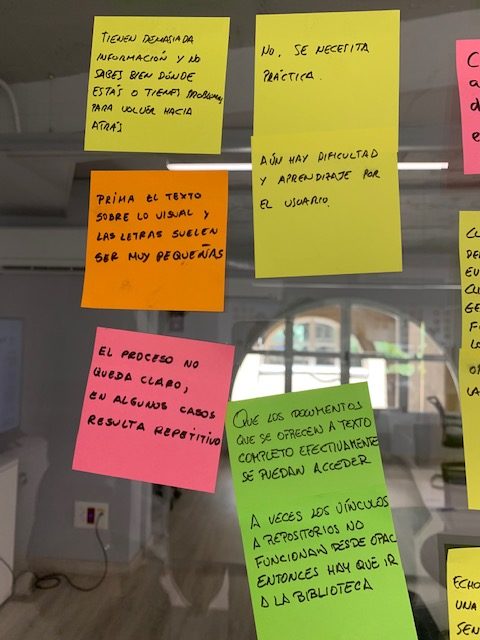 TIENEN DEMASIADA
INFORMACIÓN Y NO
SABES BIEN DÓNDE
ESTÁS O TIENES PROBLEMAS
PARA VOLVER HACIA
ATRÁS
NO, SE NECESITA
PRÁCTICA.
AÚN HAY DIFICULTAD
Y APRENDIZAJE POR
EL USUARIO.
PRIMA EL TEXTO
SOBRE LO VISUAL Y
LAS LETRAS SUELEN
SER MUY PEQUEÑAS
EL PROCESO NO
QUEDA CLARO,
EN ALGUNOS CASOS
RESULTA REPETITIVO
QUE LOS DOCUMENTOS
QUE SE OFRECEN A TEXTO
COMPLETO EFECTIVAMENTE
SE PUEDAN ACCEDER
A VECES LOS VÍNCULOS
A REPOSITORIOS NO
FUNCIONAN DESDE OPAC
ENTONCES HAY QUE IR
A LA BIBLIOTECA
LA
ECHO
UNA
SEN